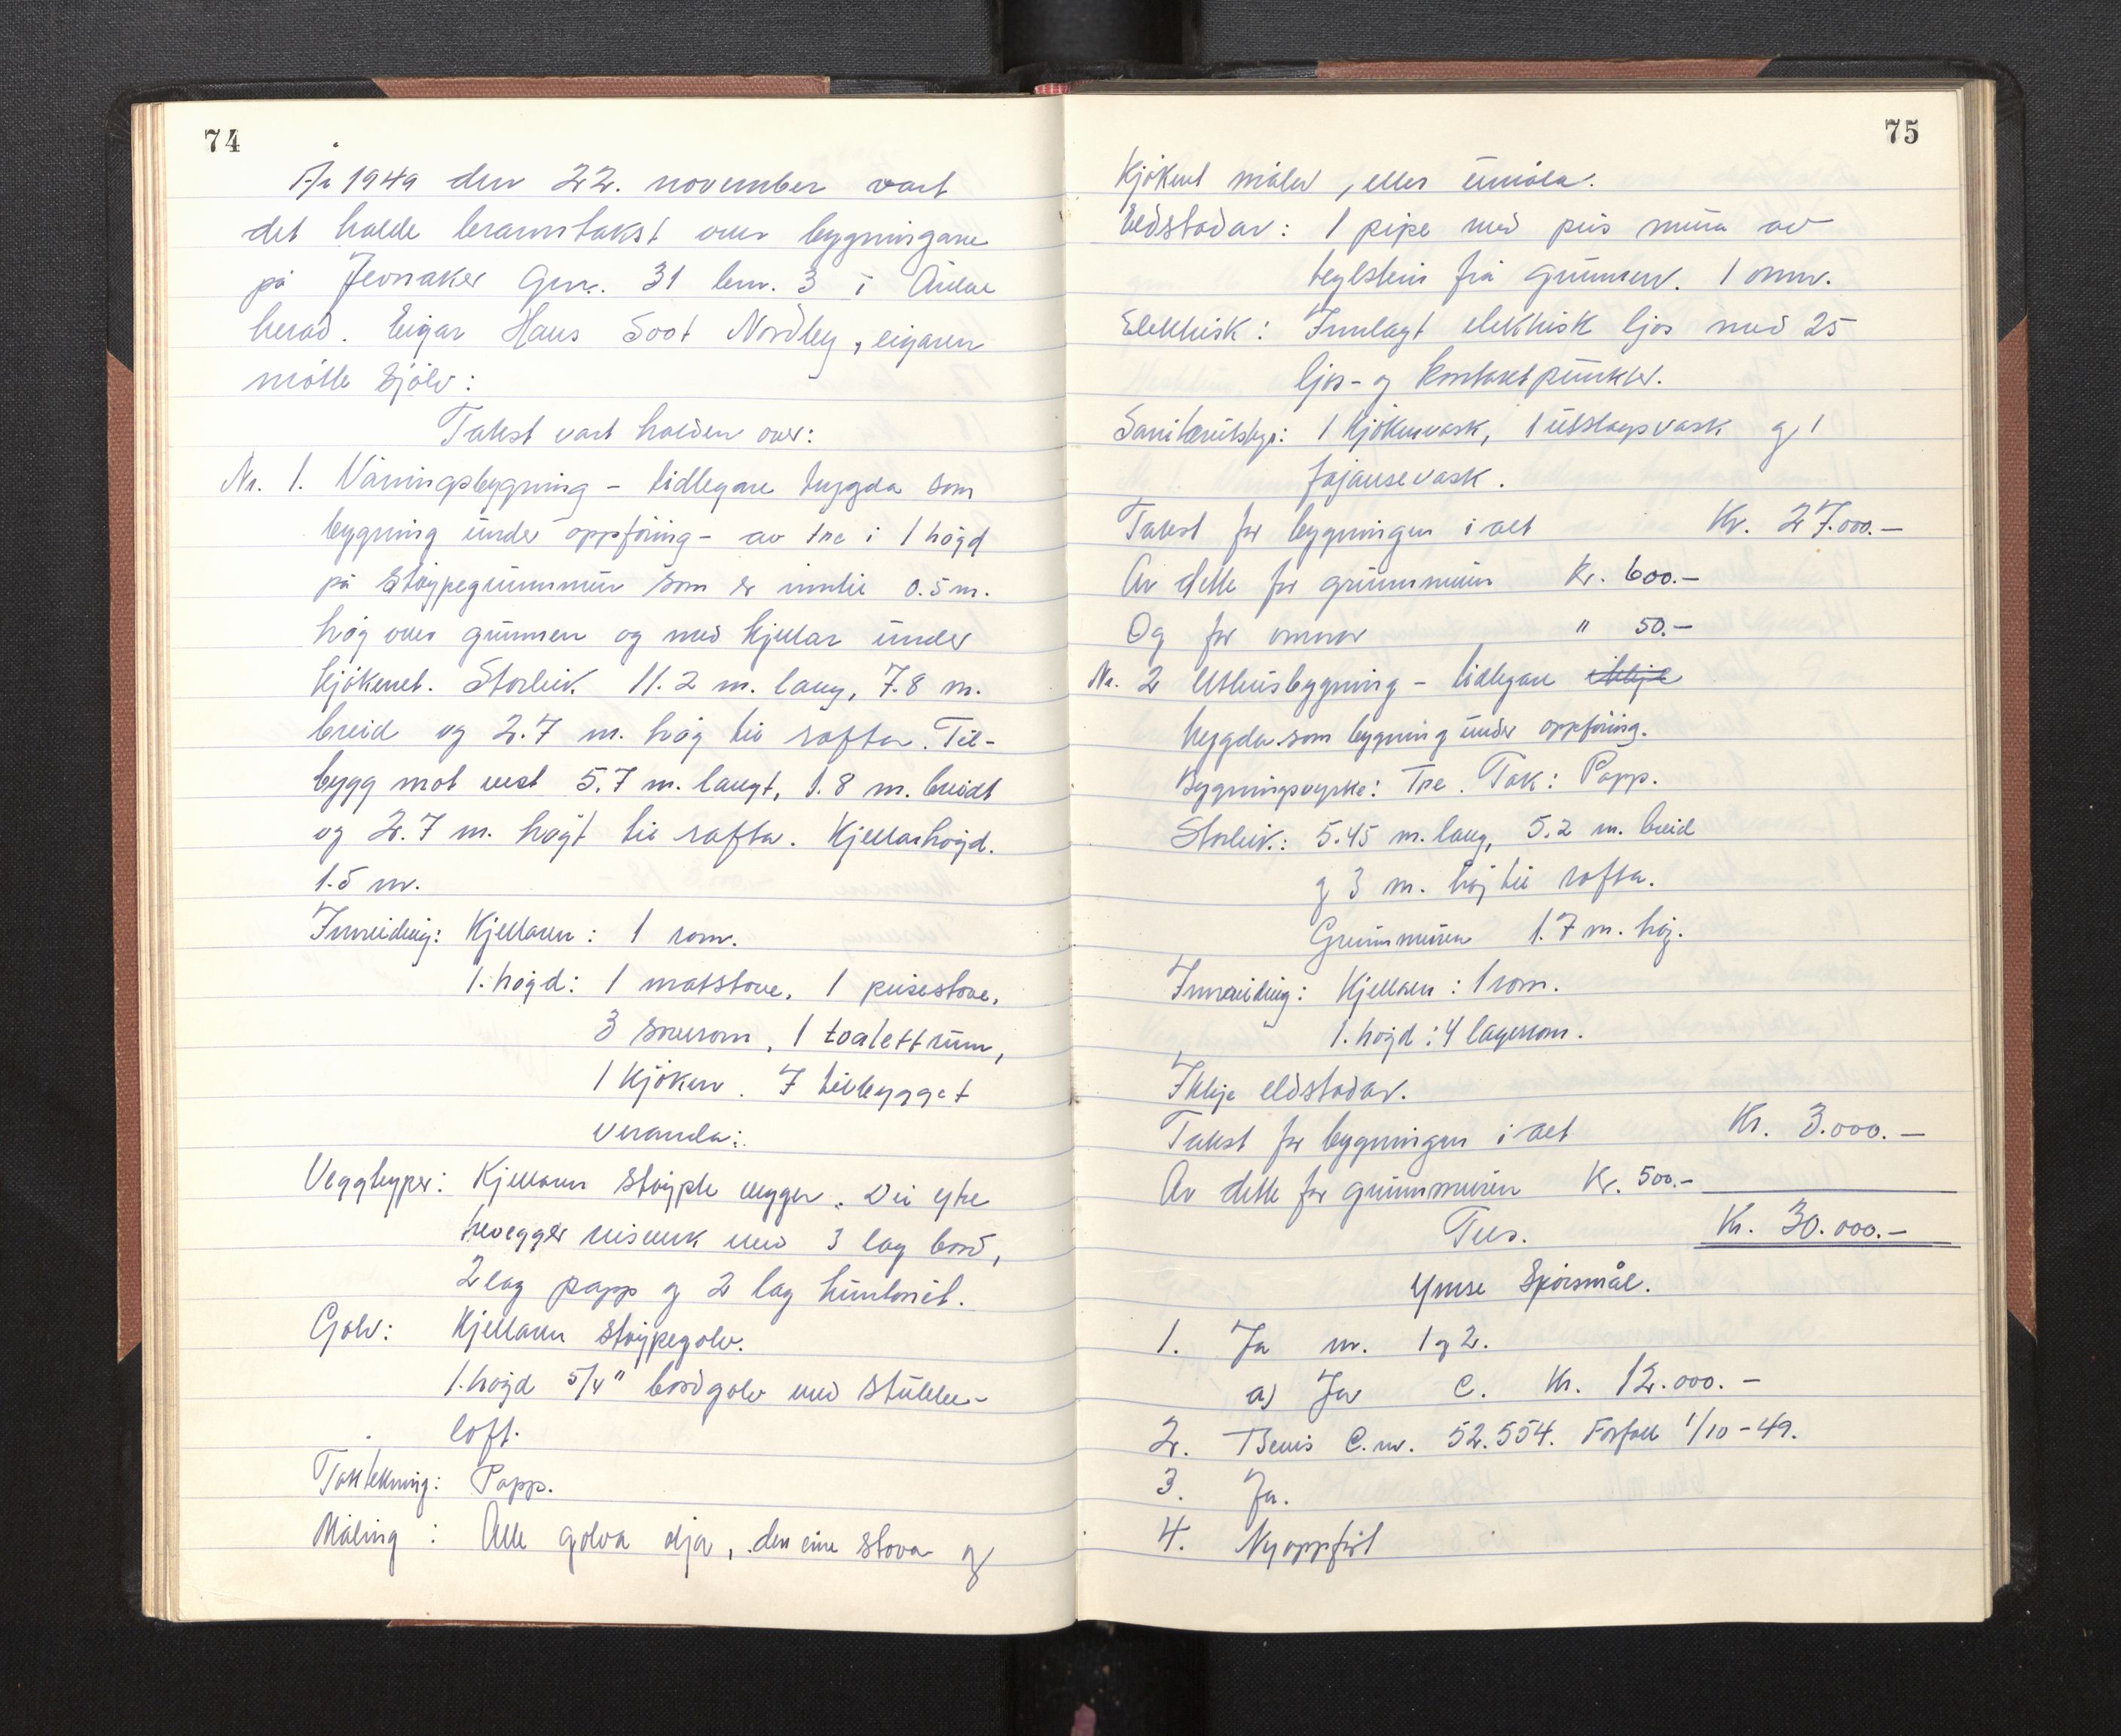 74
År 1949 den 22. november vart
det halde branntakst over bygningane
på Jevnaker Gnr. 31 bnr. 3 i
herad. Eigar Hans Soot Nordby, eigaren
møtte sjølv:
Takst vart halden over:
Nr. 1. Våningsbygning – tidlegare trygda som
bygning under oppføring – av tre i 1 høgd
på støypegrunnmur som er inntil 0.5 m.
høg over grunnen og med kjellar under
kjøkenet. Storleik 11.2 m. lang, 7.8 m.
breid og 2.7 m. høg til rafta. Til-
bygg mot vest 5.7 m. langt, 1.8 m. breidt
og 2.7 m. høgt til rafta. Kjellarhøgd.
1.5 m.
Innreiding: Kjellaren: 1 rom.
1. høgd: 1 matstove, 1 peisestove,
3 soverom, 1 toalettrum,
1 kjøken. I tilbygget
veranda.
Veggtyper: Kjellaren støypte vegger. Dei ytre
trevegger reisverk med 3 lag bord,
2 lag papp og 2 lag huntonit.
Golv: Kjellaren støypegolv.
1. høgd 5/4" bordgolv med stubbe-
loft.
Taktekning: Papp.
Måling: Alle golva olja, den eine stova og
75
Kjøkent måla, elles umåla.
Eldstadar: 1 pipe med peis mura av
teglstein frå grunnen. 1 omn.
Elektrisk: Innlagt elektrisk ljos med 25
ljos- og kontaktpunkter.
Sanitærutstyr: 1 kjøkenvask, 1 utslagsvask og 1
fajansevask.
Takst for bygningen i alt Kr. 27.000.–
Av dette for grunnmuren kr. 600.–
Og for omnar " 50.–
Nr. 2 Uthusbygning – tidlegare ikkje
trygda som bygning under oppføring.
Bygningsvyrke: Tre. Tak: Papp.
Storleik: 5.45 m. lang, 5.2 m. breid
og 3 m. høg til rafta.
Grunnmuren 1.7 m. høg.
Innreiding: Kjellaren: 1 rom.
1. høgd: 4 lagerrom.
Ikkje eldstadar.
Takst for bygningen i alt Kr. 3.000.–
Av dette for grunnmuren Kr. 500.–
Tils. Kr. 30.000.–
Ymse Spørsmål.
1. Ja nr. 1 og 2.
a) Ja C. Kr. 12.000.–
2. Bevis C. nr. 52.554. Forfall 1/10-49.
3. Ja.
4. Nyoppført